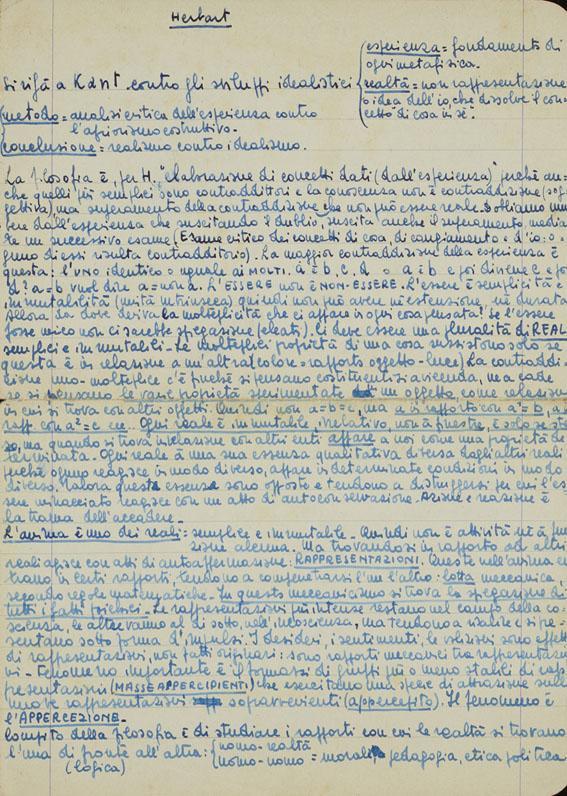 Herbart
Si rifà a Kant contro gli sviluppi idealistici
esperienza = fondamento di
ogni metafisica.
realtà = non rappresentazione
o idea dell'io, che dissolve il con
cetto di cosa in sé.
metodo = analisi critica dell'esperienza contro
l'apriorismo costruttivo.
conclusione = realismo contro idealismo.
La filosofia è, per H. "elaborazione di concetti dati (dall'esperienza)" perché an-
che quelli più semplici sono contraddittori e la conoscenza non è contraddizione (sog
gettiva), ma superamento della contraddizione che non può essere reale. Dobbiamo muo
vere dall'esperienza che suscitando il dubbio, suscita anche il superamento, median
te un successivo esame (Esame critico dei concetti di cosa, di cangiamento e d'io: o
gnuno di essi risulta contraddittorio). La maggior contraddizione della esperienza è
questa: l'UNO identico o uguale ai MOLTI. a è b, c, d o a è b e poi diviene c e poi
d? a = b vuol dire a = non a. L'ESSERE non è NON-ESSERE. L'essere è semplicità e
immutabilità (unità intrinseca) quindi non può avere né estensione, né durata
Allora, da dove deriva la molteplicità che ci appare in ogni cosa pensata? Se l'essere
fosse unico non ci sarebbe spiegazione (eleati). Ci deve essere una pluralità di REALI
semplici e immutabili. Le molteplici proprietà di una cosa sussistono solo se
questa è in relazione a un'altra (colore = rapporto oggetto-luce) La contraddi-
zione uno-molteplice c'è finché si pensano costituenti si a vicenda, ma cade
se si pensano le varie proprietà sperimentate un oggetto, come relazioni
in cui si trova con altri oggetti. Quindi non a = b = c, ma a in rapporto con a² = b, a in
rapp con a² = c ecc. Ogni reale è immutabile, irrelativo, non ha finestre, è solo se stes
so, ma quando si trova in relazione con altri enti appare a noi come una proprietà de
terminata. Ogni reale è una sua essenza qualitativa diversa dagli altri reali
perché ognuno reagisce in modo diverso, appare in determinate condizioni in modo
diverso. Talora queste essenze sono opposte e tendono a distruggersi per cui l'es
sere minacciato reagisce con un atto di autoconservazione. Azione e reazione è
la trama dell'accadere.
L'anima è uno dei reali = semplice e immutabile. Quindi non è attività né à fun
zione alcuna. Ma trovandosi in rapporto ad altri
reali agisce con atti di autoaffermazione: RAPPRESENTAZIONI. Queste nell'anima en
trano in certi rapporti, tendono a compenetrarsi l'un l'altro: lotta meccanica,
secondo regole matematiche. In questo meccanicismo si trova la spiegazione di
tutti i fatti psichici. Le rappresentazioni più intense restano nel campo della co-
scienza, le altre vanno al di sotto, nell'incoscienza, ma tendono a risalire e si pre-
sentano sotto forma d'impulsi. I desideri, i sentimenti, le volizioni sono effetti
di rappresentazioni, non fatti originari: sono rapporti meccanici tra rappresentazio
ni. Fenomeno importante è il formarsi di gruppi più o meno stabili di rap
presentazioni (MASSE APPERCIPIENTI) che esercitano una specie di attrazione sulle
nuove rappresentazioni sopravvenienti (appercepito). Il fenomeno è
l'APPERCEZIONE.
Compito della filosofia è di studiare i rapporti con cui le realtà si trovano
l'una di fronte all'altra: uomo-realtà
(logica) uomo-uomo = morale, pedagogia, etica politica